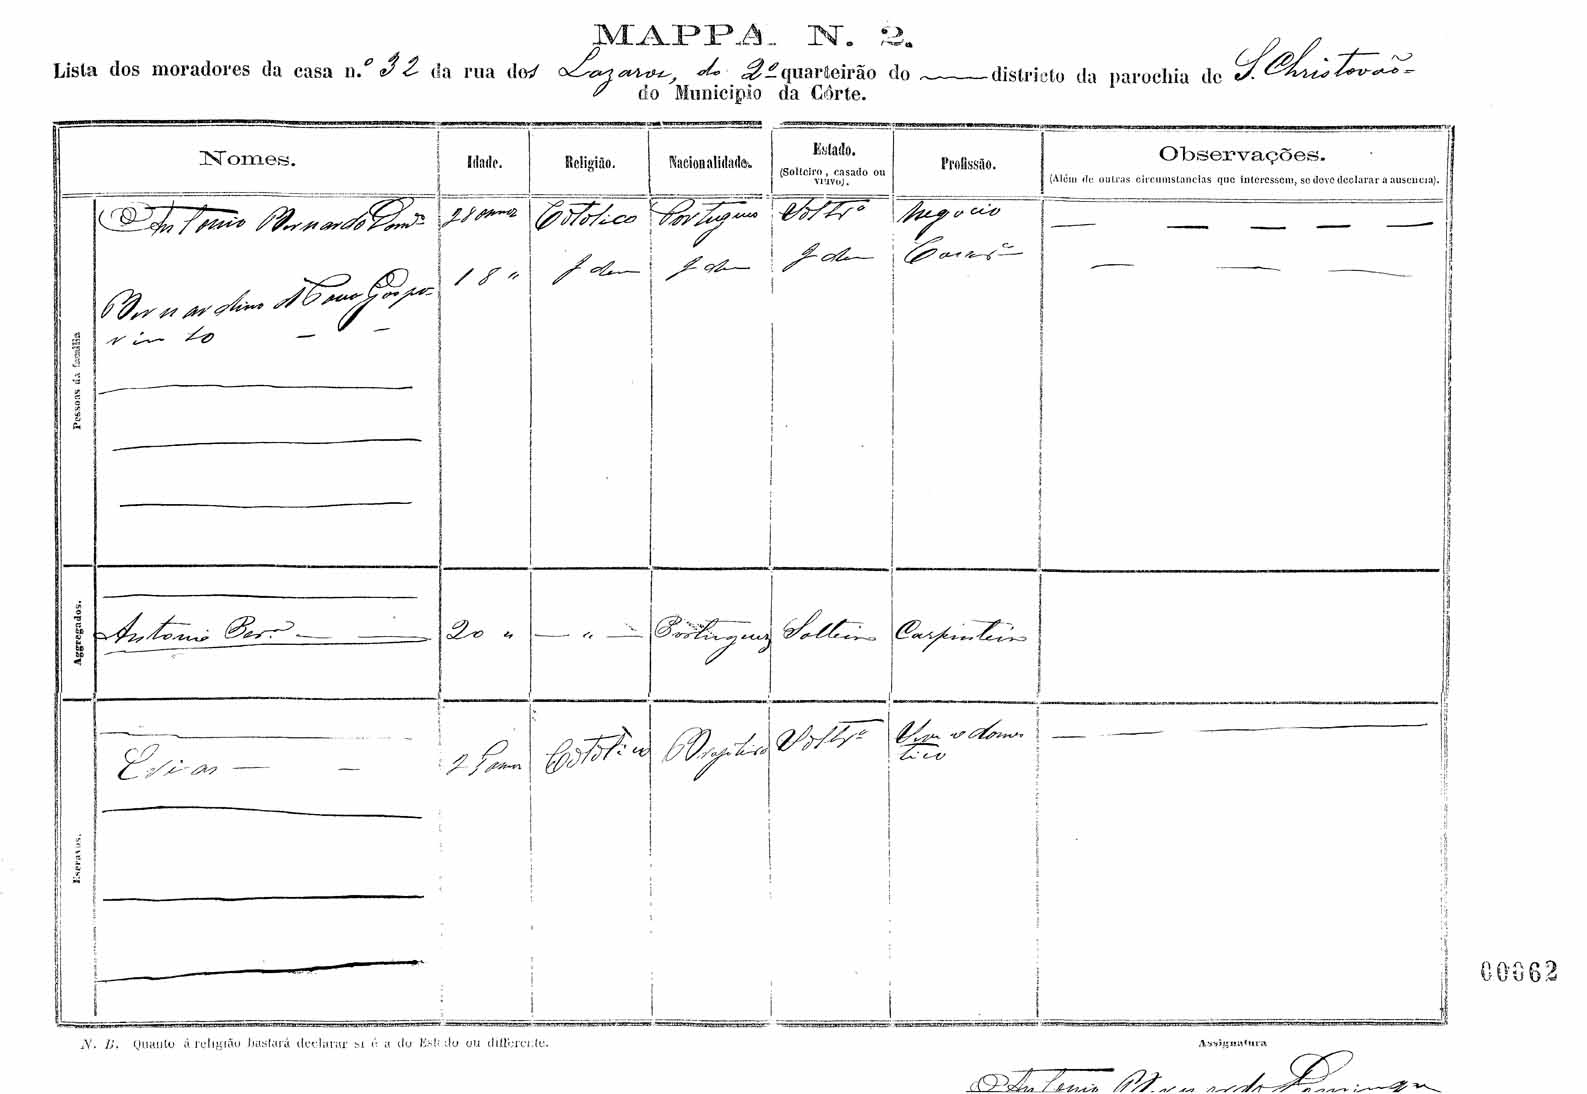 MAPPA N. 2.
Lista dos moradores da casa n.º 32 da rua dos Lazaros, do 2º quarteirão do — districto da parochia de S. Christovão
do Municipio da Côrte.
Nomes. Idade. Religião. Nacionalidade. Estado. Profissão. Observações.
(Solteiro, casado ou viuvo). (Além de outras circumstancias que interessem, se deve declarar a ausencia).
Pessoas da familia
Antonio Bernardo Domos 28 annos Catolico Portugues Soltrº Negocio
Bernardino 18 " Idem Idem Idem Caixrº
Aggregados.
Antonio Perª 20 " — " — Portuguez Solteiro Carpinteiro
Escravos.
Elias 25 annos Catolico Brasileiro Soltrº domes
tico
00062
N. B. Quanto á religião bastará declarar si é a do Estado ou differente.
Assignatura
Antonio Bernardo Domingues